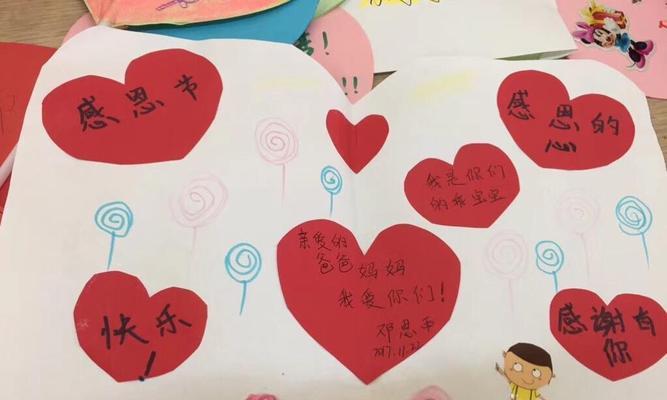 感恩节
感恩的
心
我是你们
的乖宝宝
亲爱的
爸爸妈妈
我爱你们!
邓恩
2017.11.23
快乐
!
感谢有
你